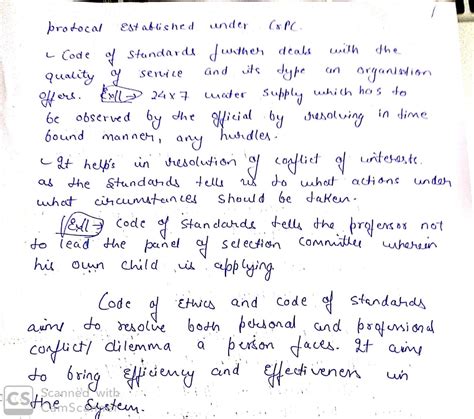 1
protocal established under CrPC.
- Code of standards further deals with the
quality of service and its type an organistion
offers. Ex1 → 24x7 water supply which has to
be observed by the official by resolving in time
bound manner, any hurdles.
- It help's in resolution of conflict of interests.
as the standards tells us to what actions under
what circumstances should be taken.
Ex1 → Code of standards tells the professor not
to lead the panel of selection Committee wherein
his own child is applying.
Code of Ethics and code of standards
aims to resolve both personal and professional
conflict/ dilemma a person faces. It aims
to bring efficiency and effectiveness in
the System.
CS Scanned with
CamScanner